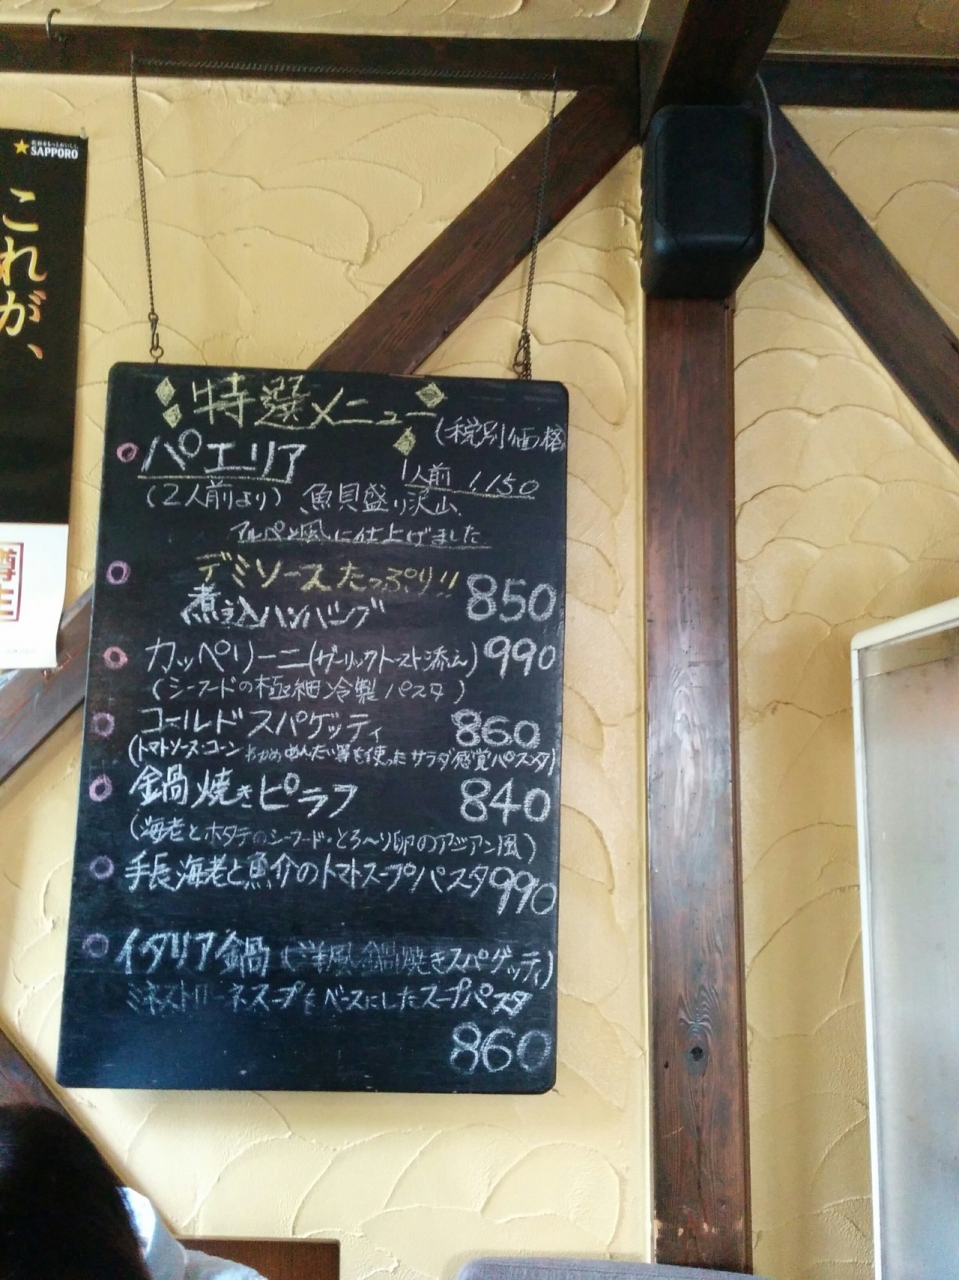 SAPPORO
これが、
特選メニュー
(税別価格
パエリア 1人前 1,150
(2人前より) 魚貝盛り沢山、
風に仕上げました
デミソースたっぷり!!
煮込ハンバーグ 850
カッペリーニ(ガーリックトースト添え) 990
(シーフードの極細冷製パスタ)
コールドスパゲッティ 860
(トマトソース・コーン わかめ めんたい等を使ったサラダ感覚パスタ)
鍋焼きピラフ 840
(海老とホタテのシーフード・とろ〜り卵のアジアン風)
手長海老と魚介のトマトスープパスタ 990
イタリア鍋 (洋風鍋焼きスパゲッティ)
ミネストローネスープをベースにしたスープパスタ
860